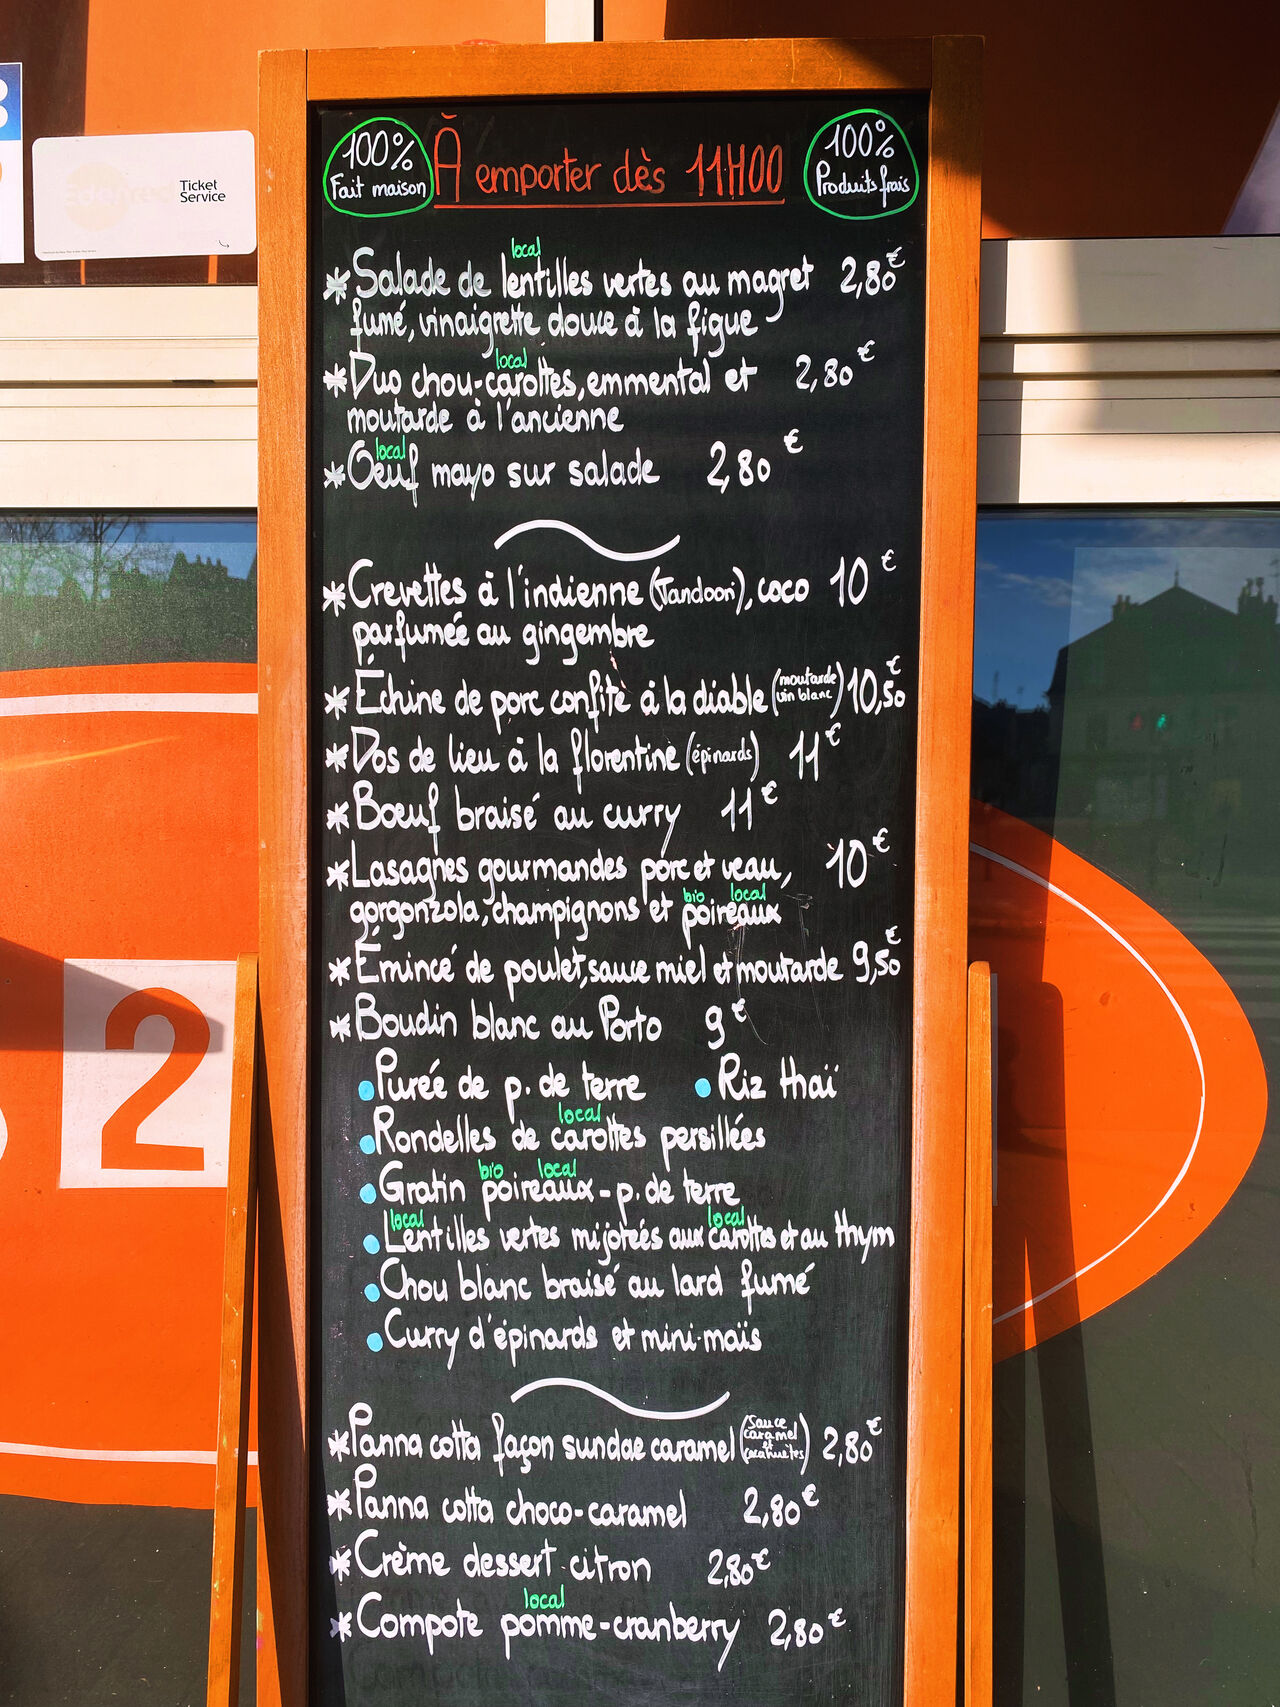 Ticket
Service
100%
Fait maison
À emporter dès 11H00
100%
Produits frais
local
*Salade de lentilles vertes au magret 2,80€
fumé, vinaigrette douce à la figue
local
*Duo chou-carottes, emmental et 2,80€
moutarde à l'ancienne
local
*Oeuf mayo sur salade 2,80€
*Crevettes à l'indienne (Tandoori), coco 10€
parfumée au gingembre
*Échine de porc confite à la diable (moutarde vin blanc) 10,50€
*Dos de lieu à la florentine (épinards) 11€
*Bœuf braisé au curry 11€
*Lasagnes gourmandes porc et veau, 10€
bio local
gorgonzola, champignons et poireaux
*Émincé de poulet, sauce miel et moutarde 9,50€
*Boudin blanc au Porto 9€
•Purée de p. de terre •Riz thaï
local
•Rondelles de carottes persillées
bio local
•Gratin poireaux-p. de terre
local local
•Lentilles vertes mijotées aux carottes et au thym
•Chou blanc braisé au lard fumé
•Curry d'épinards et mini-maïs
*Panna cotta façon sundae caramel (sauce caramel et cacahuètes) 2,80€
*Panna cotta choco-caramel 2,80€
*Crème dessert citron 2,80€
local
*Compote pomme-cranberry 2,80€
2